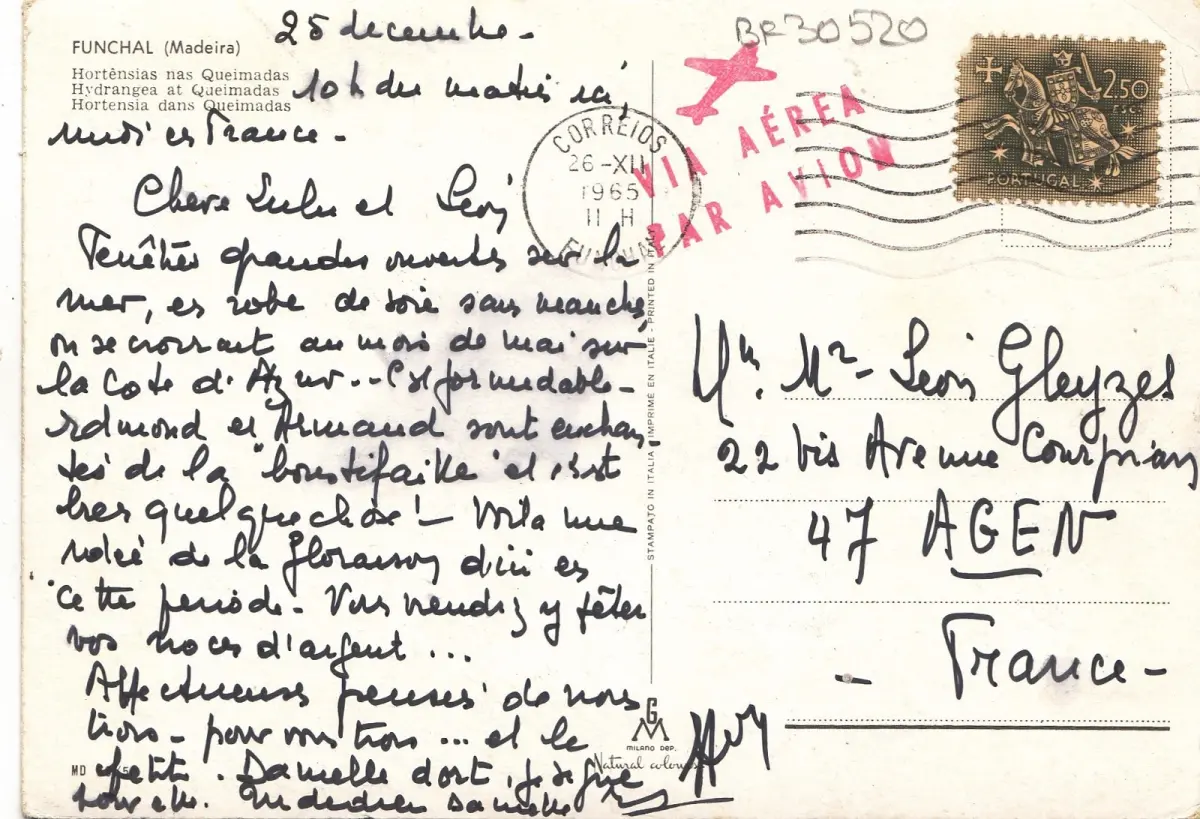 25 decembre -
BF30520
FUNCHAL (Madeira)
Hortênsias nas Queimadas
Hydrangea at Queimadas
Hortensia dans Queimadas
10 h du matin ici,
midi en France -
Chere Lulu et Léon
Fenêtres grandes ouvertes sur la
mer, en robe de soie sans manches,
on se croirait au mois de mai sur
la Cote d'Azur.. C'est formidable -
Edmond et Armand sont enchan-
tés de la "boustifaille" et c'est
tres quelque chose ! - Voila une
idée de la floraison d'ici en
cette periode - Vous viendrez y fêter
vos noces d'argent ...
Affectueuses pensées de nous
trois - pour vous trois ... et le
petit. Danielle dort, je signe
pour elle. Danielle
CORREIOS
26-XII
1965
11 H
FUNCHAL
VIA AÉREA
PAR AVION
2$50
ESC.
PORTUGAL
STAMPATO IN ITALIA - IMPRIME EN ITALIE - PRINTED IN ITALY
Mr. Léon Gleyzes
22 bis Avenue
47 AGEN
- France -
GM
MILANO DEP.
Natural colours
MD